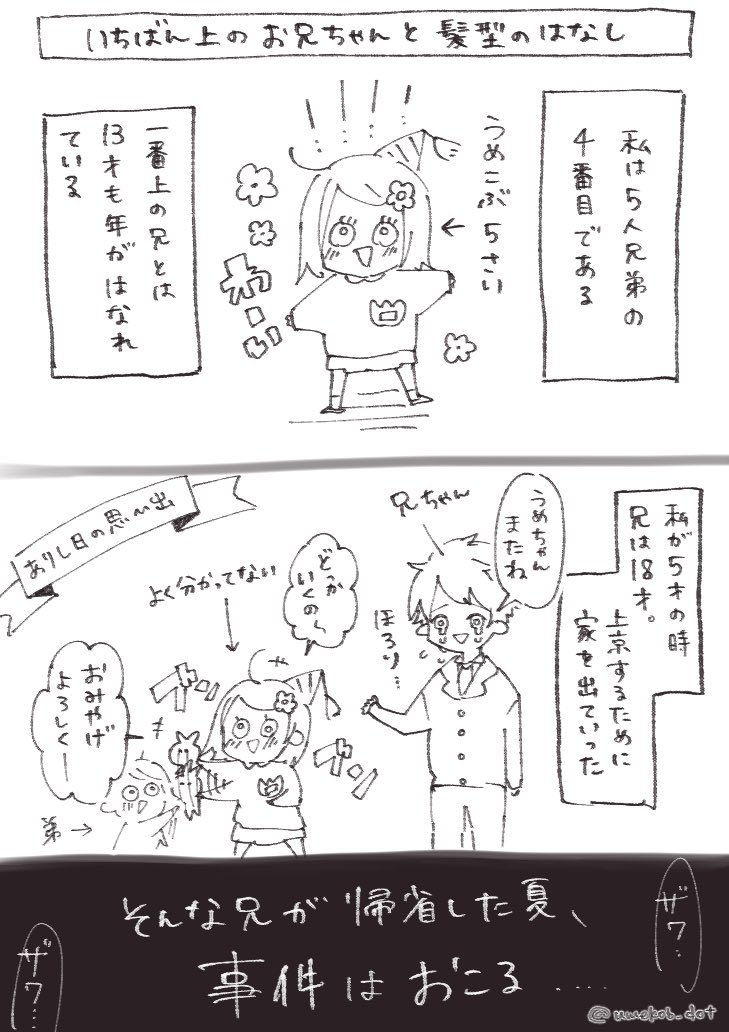 いちばん上のお兄ちゃんと髪型のはなし
私は5人兄弟の
4番目である
うめこぶ5さい
わーい
一番上の兄とは
13才も年がはなれ
ている
私が5才の時
兄は18才。
上京するために
家を出ていった
うめちゃん
またね
兄ちゃん
ほろり…
どっか
いくの〜
よく分かってない
ありし日の思い出
ブンブン
ブンブン
おみやげ
よろしくー
弟
そんな兄が帰省した夏、
事件はおこる……
ザワ…
ザワ…
@umekob_dot